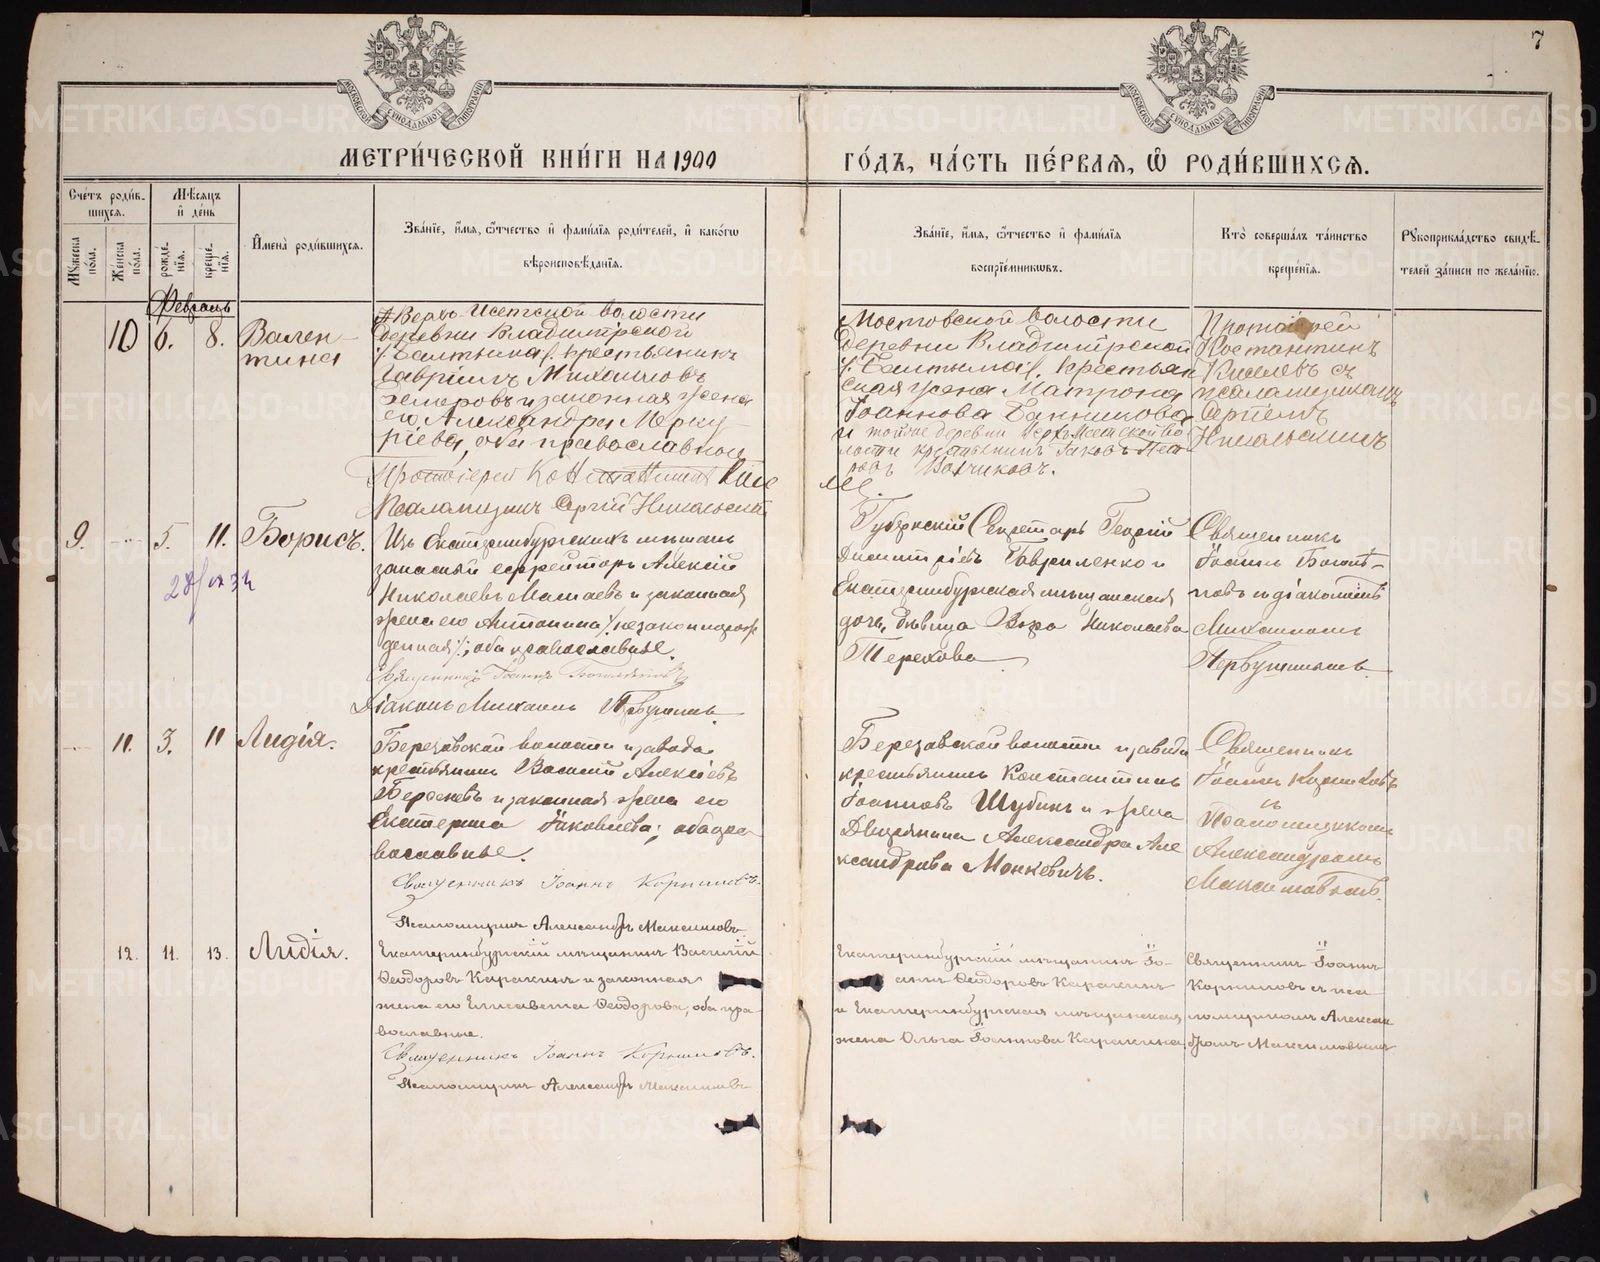 7
МЕТРИ́ЧЕСКОЙ КНИ́ГИ НА 1900
ГО́ДЪ, ЧА́СТЬ ПЕ́РВАЯ, Ѿ РОДИ́ВШИХСЯ.
Сче́тъ роди́в-
шихся.
Мѣсяцъ
и҆ де́нь
Мꙋ́жеска
по́ла.
Же́нска
по́ла.
рожде́-
нїя.
креще́-
нїя.
И҆мена̀ роди́вшихся.
Зва́нїе, и҆́мя, ѻ҆́тчество и҆ фами́лїя роди́телей, и҆ како́гѡ
вѣроисповѣ́данїя.
Зва́нїе, и҆́мя, ѻ҆́тчество и҆ фами́лїя
воспрїе́мникѡвъ.
Кто̀ соверша́лъ та́инство
креще́нїя.
Рꙋкоприкла́дство свидѣ́-
телей за́писи по жела́нїю.
Февраль
10 6. 8. Вален-
тина
Верхъ Исетской волости
деревни Владимірской
/Балтыма/, крестьянинъ
Гавріилъ Михаиловъ
и законная жена
его Александра Мерку-
ріева, оба православной
Протоіерей Константинъ
Псаломщикъ Сергій Никольскій
Мостовской волости
деревни Владимірской
/Балтыма/, крестьян
ская жена Матрона
Іоаннова Банникова
и тойже деревни Верхъ Исетской во
лости крестьянинъ Іаковъ Пет
ровъ Волчиковъ.
Протоіерей
Костантинъ
Киселевъ съ
псаломщикомъ
Сергіемъ
Никольскимъ
9. 5. 11. Борисъ.
Изъ Екатеринбургскихъ мѣщанъ
запасный ефрейторъ Алексій
Николаевъ и законная
жена его Антонина /незаконнорож
денная/; оба православные.
Священникъ Іоаннъ
Діаконъ Михаилъ
Губернскій Секретарь Георгій
Димитріевъ Гавриленко и
Екатеринбургская мѣщанская
дочь, дѣвица Вѣра Николаева
Терехова
Священникъ
Іоаннъ
и діакономъ
Михаиломъ
11. 3. 11 Лидія.
Березовской волости и завода
крестьянинъ Василій Алексіевъ
и законная жена его
Екатерина Іаковлева; оба пра
вославные.
Священникъ Іоаннъ Корниловъ.
Псаломщикъ Александръ Максимовъ
Березовской волости и завода
крестьянинъ Константинъ
Іоанновъ Шубинъ и жена
Дворянина Александра Але
ксандрова Монкевичъ.
Священникъ
Іоаннъ Корниловъ
съ
Псаломщикомъ
Александромъ
Максимовымъ.
12. 11. 13. Лидія.
Екатеринбургскій мѣщанинъ Василій
Ѳеодоровъ Каракинъ и законная
жена его Елисавета Ѳеодорова; оба пра-
вославные.
Священникъ Іоаннъ Корниловъ.
Псаломщикъ Александръ Максимовъ
Екатеринбургскій мѣщанинъ Іо-
аннъ Ѳеодоровъ Каракинъ
и Екатеринбургская мѣщанская
жена Ольга Іоаннова Каракина
Священникъ Іоаннъ
Корниловъ съ пса-
ломщикомъ Алексан
дромъ Максимовымъ